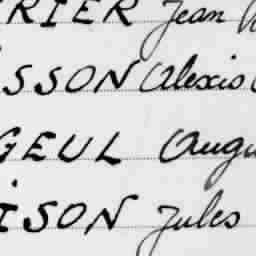 RIER Jean
SSON Alexis
GEUL Augu
ISON Jules